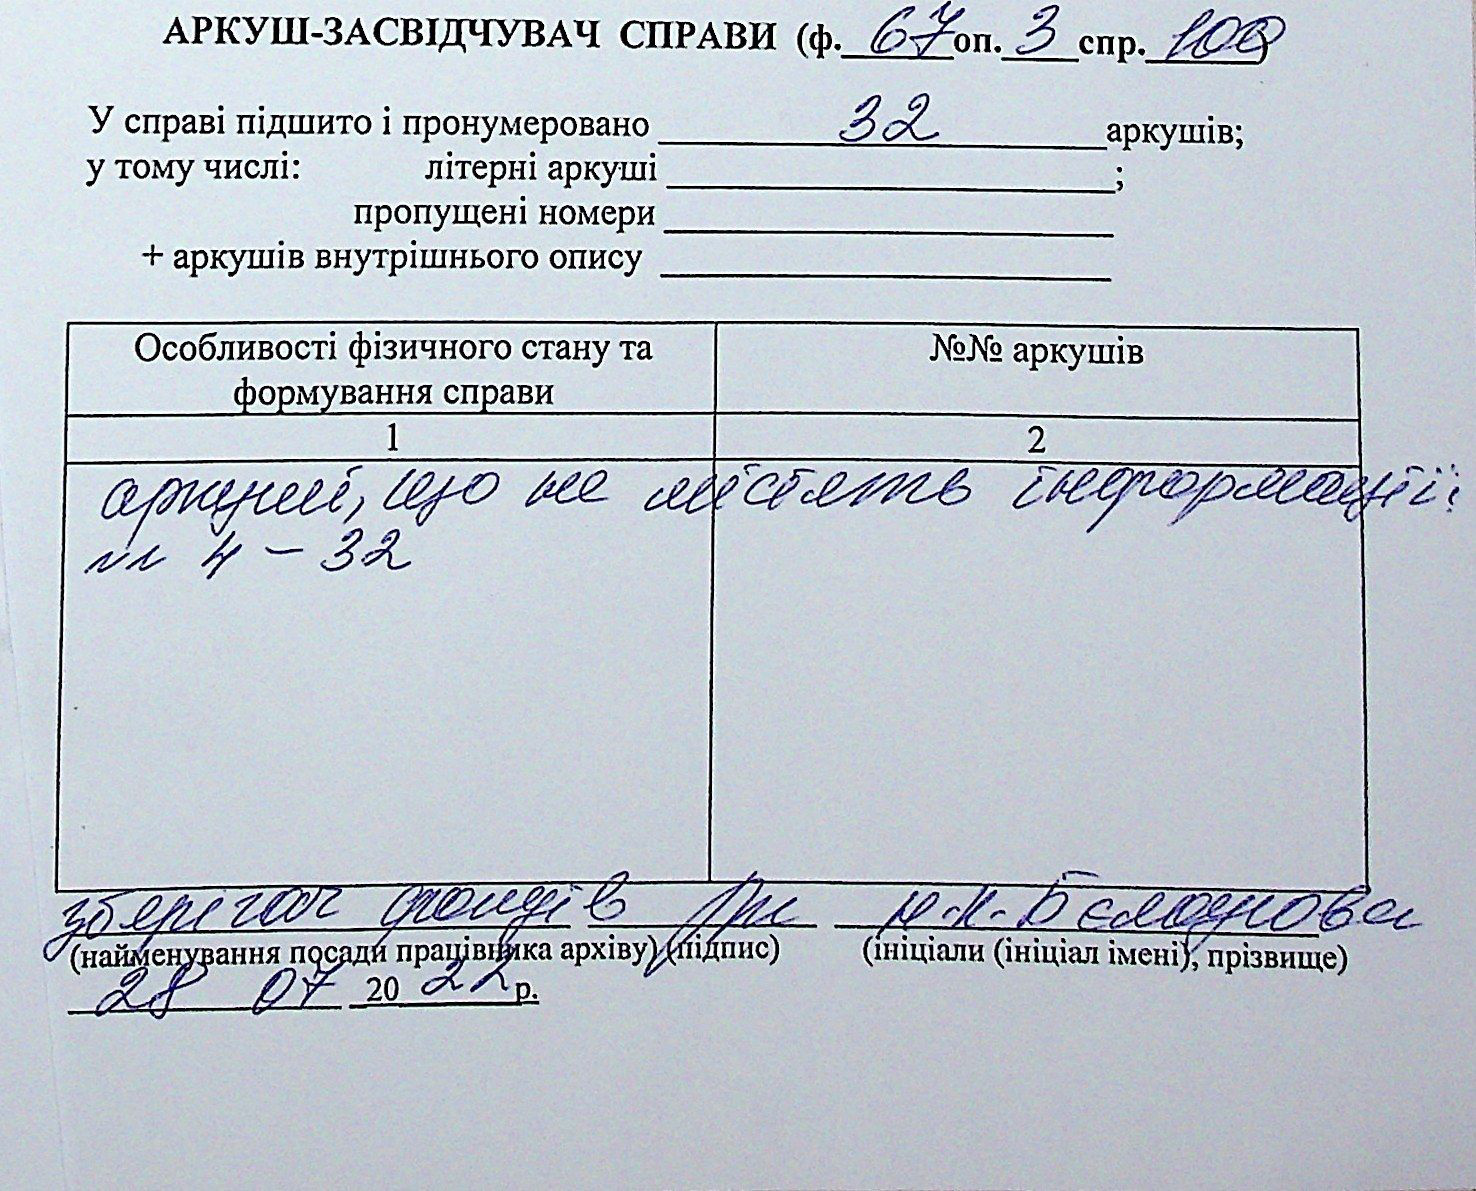 АРКУШ-ЗАСВІДЧУВАЧ СПРАВИ (ф. 67 оп. 3 спр. 100)
У справі підшито і пронумеровано 32 аркушів;
у тому числі: літерні аркуші ;
пропущені номери
+ аркушів внутрішнього опису
Особливості фізичного стану та формування справи
№№ аркушів
1 2
аркуші, що не містять інформації:
4 – 32
зберігач фондів
(найменування посади працівника архіву) (підпис) (ініціали (ініціал імені), прізвище)
28 07 2022 р.